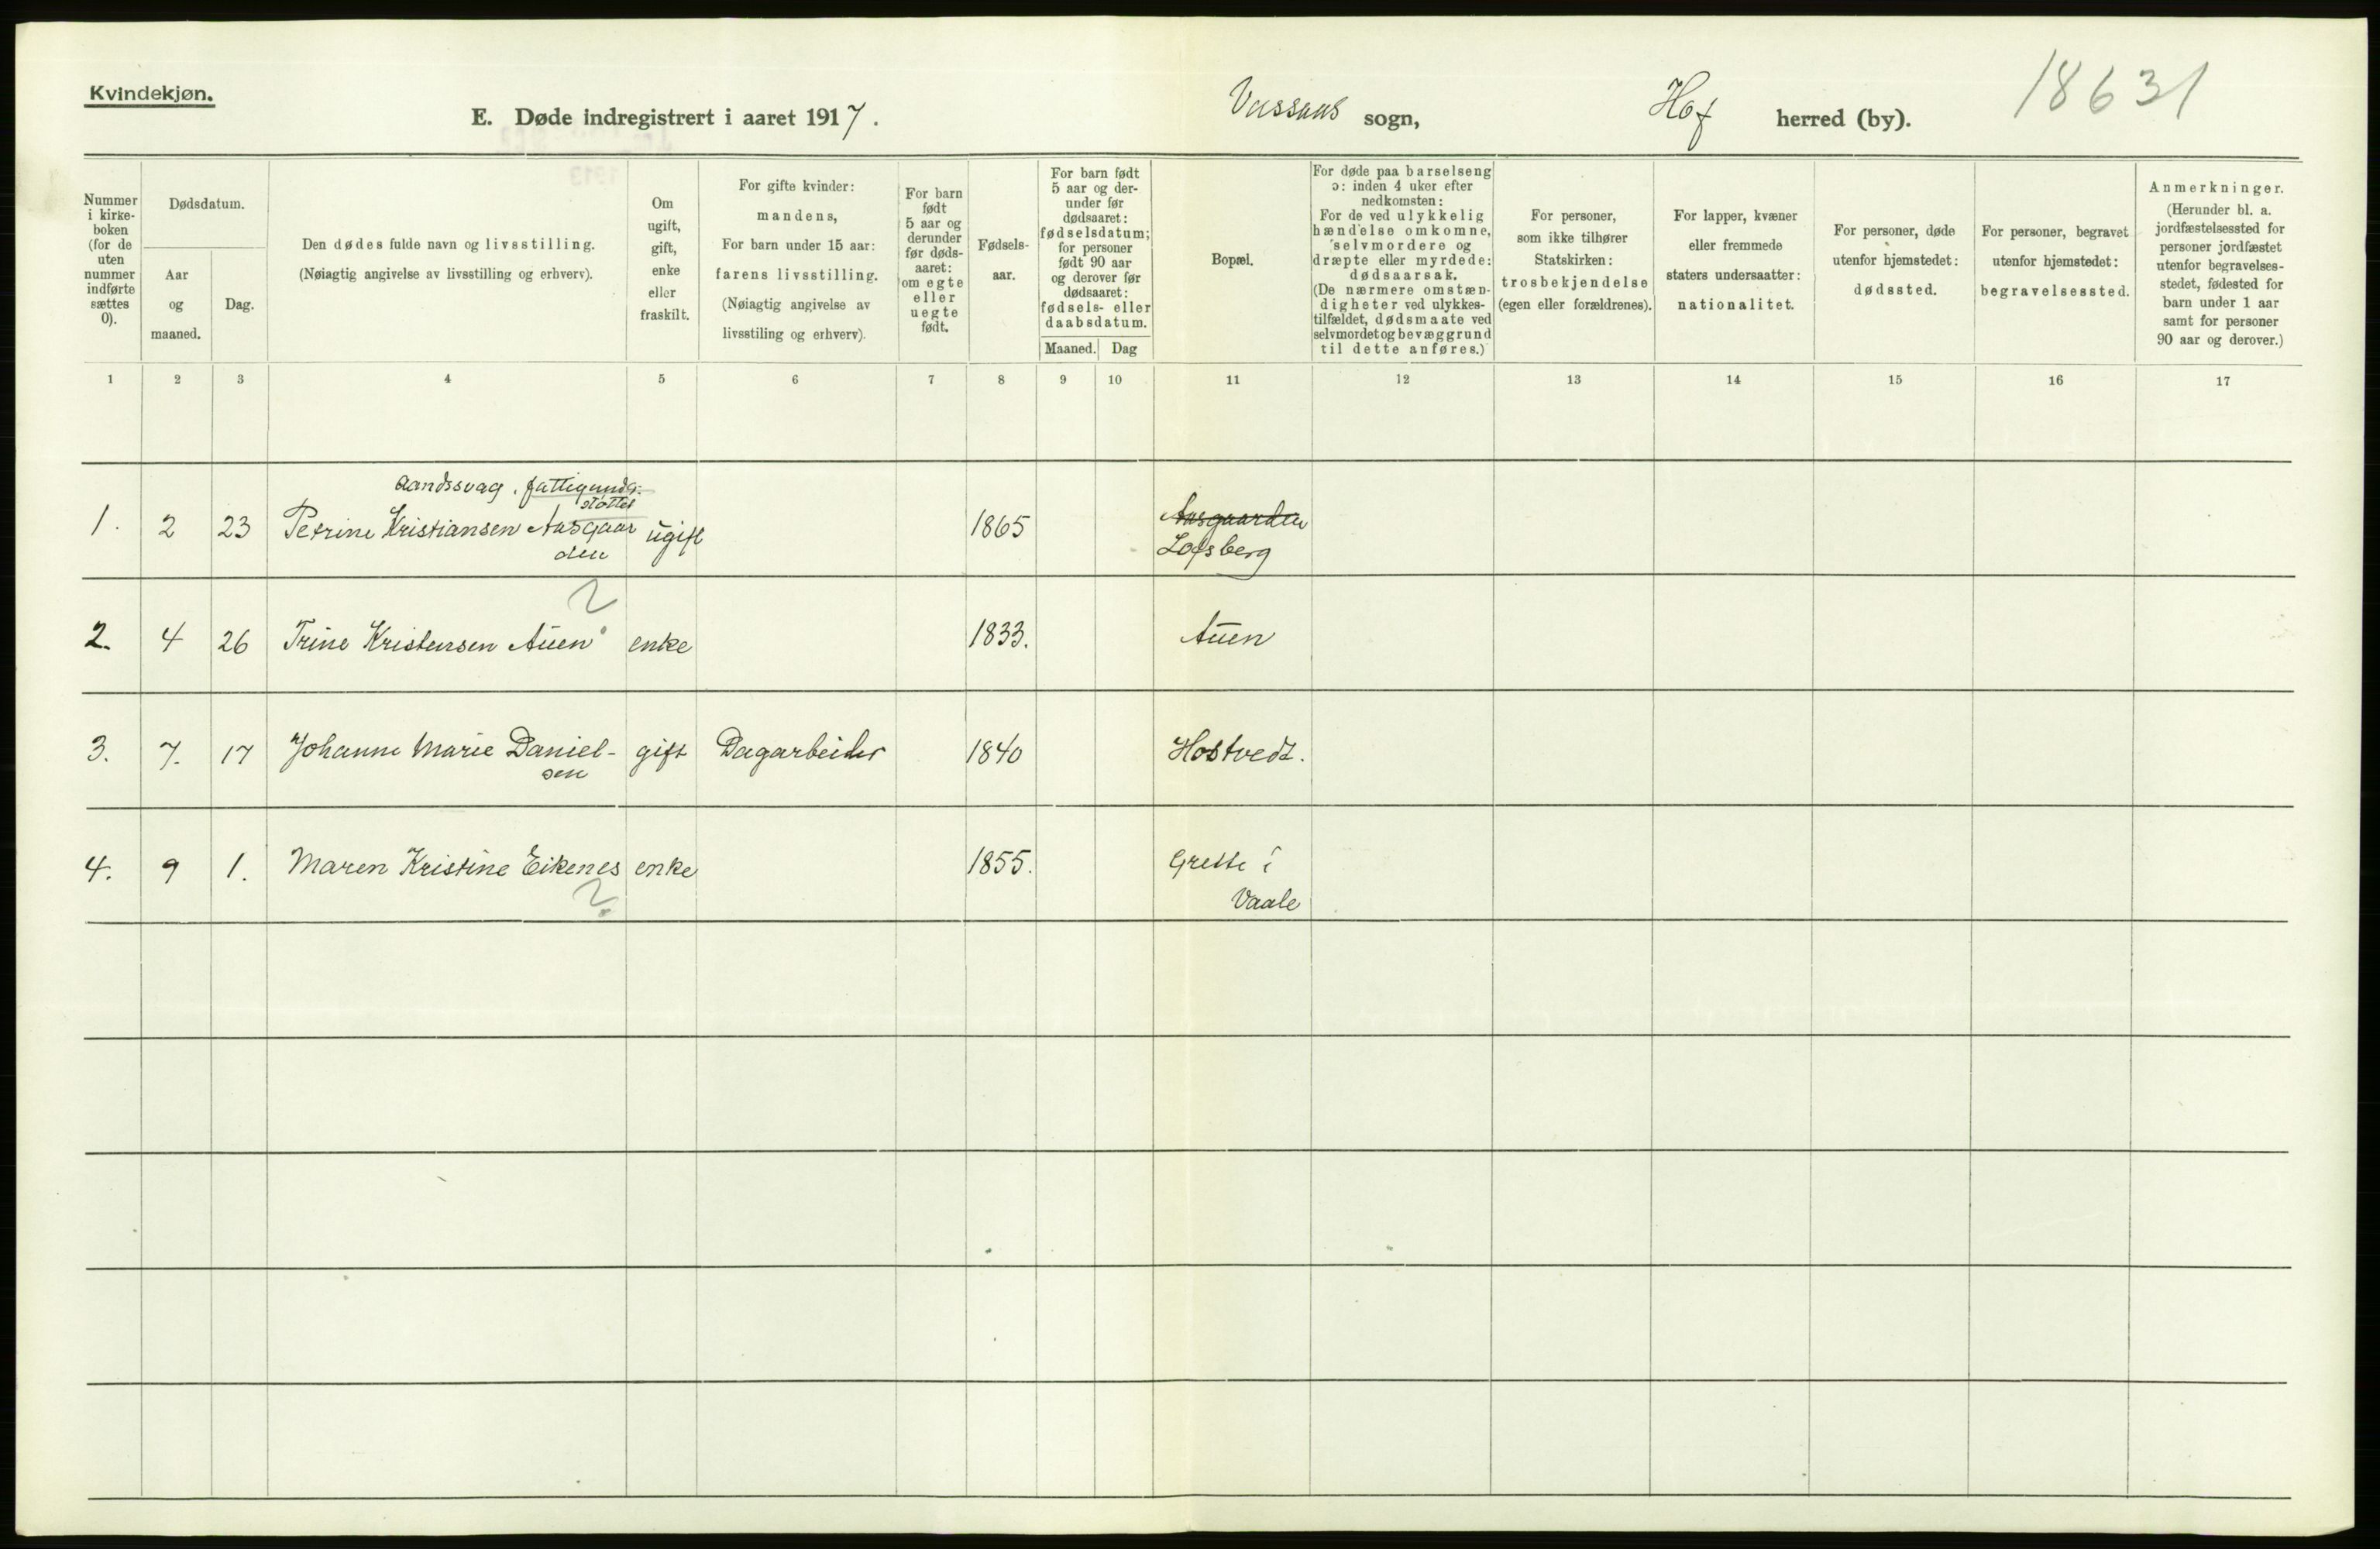 Kvindekjøn.
E. Døde indregistrert i aaret 1917.
Vassaas sogn,
Hof herred (by).
18631
Nummer i kirke-boken (for de uten nummer indførte sættes 0).
Dødsdatum.
Aar og maaned.
Dag.
Den dødes fulde navn og livsstilling.
(Nøiagtig angivelse av livsstilling og erhverv).
Om ugift, gift, enke eller fraskilt.
For gifte kvinder:
mandens,
For barn under 15 aar:
farens livsstilling.
(Nøiagtig angivelse av
livsstiling og erhverv).
For barn født 5 aar og derunder før døds-aaret: om egte eller uegte født.
Fødsels-aar.
For barn født
5 aar og der-
under før
dødsaaret:
fødselsdatum;
for personer
født 90 aar
og derover før
dødsaaret:
fødsels- eller
daabsdatum.
Maaned. Dag
Bopæl.
For døde paa barselseng
ɔ: inden 4 uker efter
nedkomsten:
For de ved ulykkelig
hændelse omkomne,
selvmordere og
dræpte eller myrdede:
dødsaarsak.
(De nærmere omstæn-
digheter ved ulykkes-
tilfældet, dødsmaate ved
selvmordet og bevæggrund
til dette anføres.)
For personer,
som ikke tilhører
Statskirken:
trosbekjendelse
(egen eller forældrenes).
For lapper, kvæner
eller fremmede
staters undersaatter:
nationalitet.
For personer, døde
utenfor hjemstedet:
dødssted.
For personer, begravet
utenfor hjemstedet:
begravelsessted.
Anmerkninger.
(Herunder bl. a.
jordfæstelsessted for
personer jordfæstet
utenfor begravelses-
stedet, fødested for
barn under 1 aar
samt for personer
90 aar og derover.)
1 2 3 4 5 6 7 8 9 10 11 12 13 14 15 16 17
aandssvag, fattigunds-
støttet
1. 2 23 Petrine Kristiansen Aasgaar ugift 1865 Aasgaarden
den Lofsberg
2
2. 4 26 Trine Kristensen Auen enke 1833. Auen
3. 7. 17 Johanne Marie Daniel- gift Dagarbeider 1840 Hostvedt.
sen
4. 9 1. Maren Kristine Eikenes enke 1855. Grette i
? Vaale